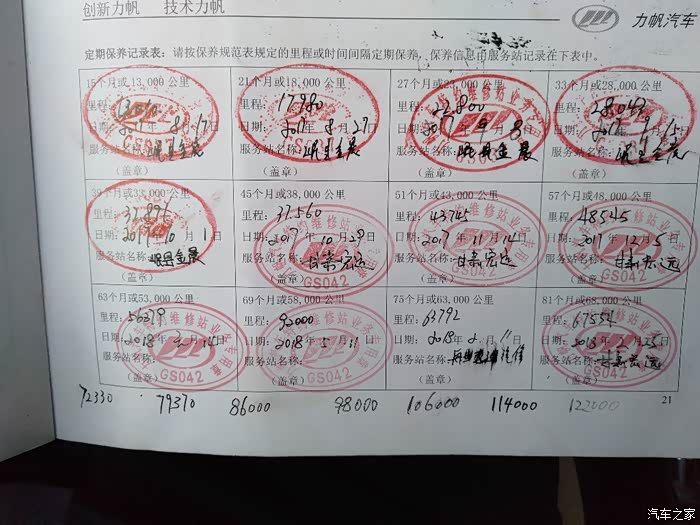 创新力帆 技术力帆
力帆汽车
定期保养记录表：请按保养规范表规定的里程或时间间隔定期保养，保养信息由服务站记录在下表中。
15个月或13,000公里
里程：
日期：2017年8月17日
服务站名称：岷县金晨
（盖章）
21个月或18,000公里
里程：17980
日期：2017年8月27日
服务站名称：
（盖章）
27个月或23,000公里
里程：22800
日期：2017年9月8日
服务站名称：岷县金晨
（盖章）
33个月或28,000公里
里程：28042
日期：2017年9.15日
服务站名称：岷县金晨
（盖章）
39个月或33,000公里
里程：32896
日期：2017年10月1日
服务站名称：岷县金晨
（盖章）
45个月或38,000公里
里程：37560
日期：2017年10月29日
服务站名称：甘肃宏远
（盖章）
GS042
51个月或43,000公里
里程：43745
日期：2017年11月14日
服务站名称：甘肃宏远
（盖章）
GS042
57个月或48,000公里
里程：48545
日期：2017年12月5日
服务站名称：甘肃宏远
（盖章）
GS042
63个月或53,000公里
里程：56379
日期：2018年2月15日
服务站名称：
（盖章）
GS042
69个月或58,000公里
里程：92000
日期：2018年5月11日
服务站名称：
（盖章）
GS042
75个月或63,000公里
里程：63792
日期：2018年2月11日
服务站名称：
（盖章）
81个月或68,000公里
里程：67554
日期：2018年 月25日
服务站名称：甘肃宏远
（盖章）
GS042
72330 79370 86000 98000 106000 114000 122000
21
汽车之家